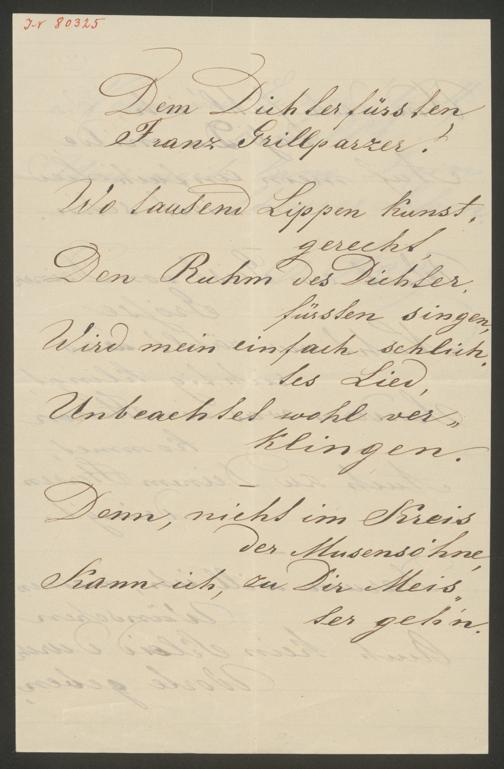 J.N 80325
Dem Dichterfürsten
Franz Grillparzer!
Wo tausend Lippen kunst-
gerecht,
Den Ruhm des Dichter-
fürsten singen,
Wird mein einfach schlich-
tes Lied,
Unbeachtet wohl ver„
klingen.
Denn, nicht im Kreis
der Musensöhne,
Kann ich, zu Dir Meis„
ter geh'n.